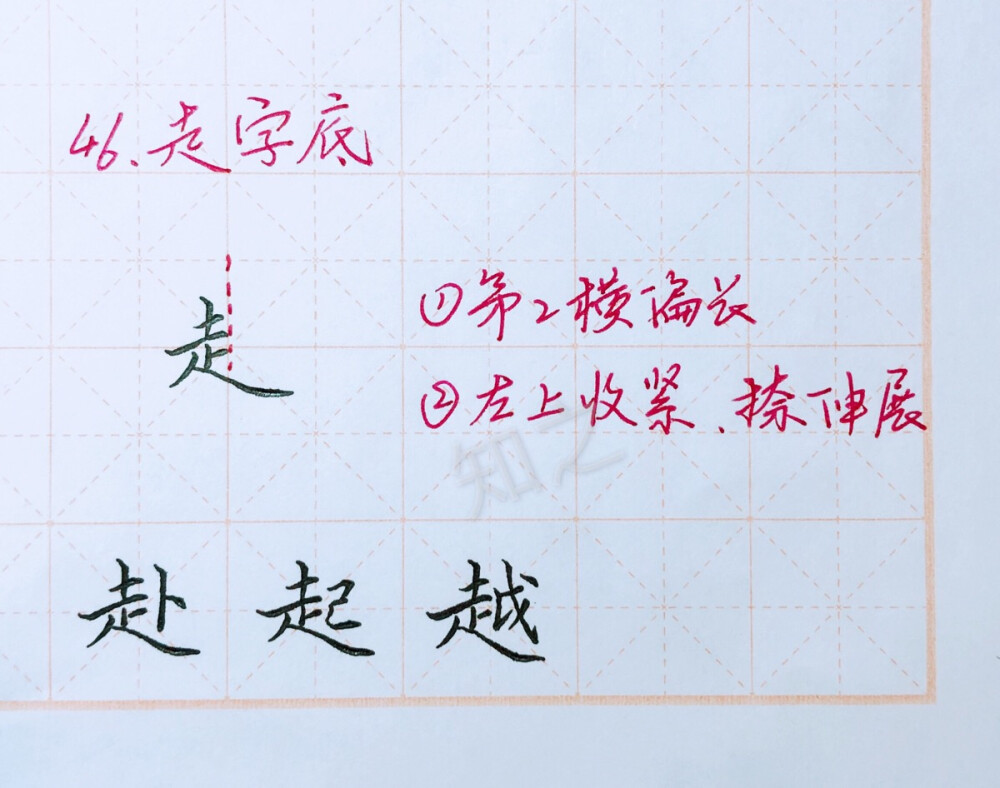 46、走字底
走
①第2横偏长
②左上收紧、捺伸展
知之
赴 起 越